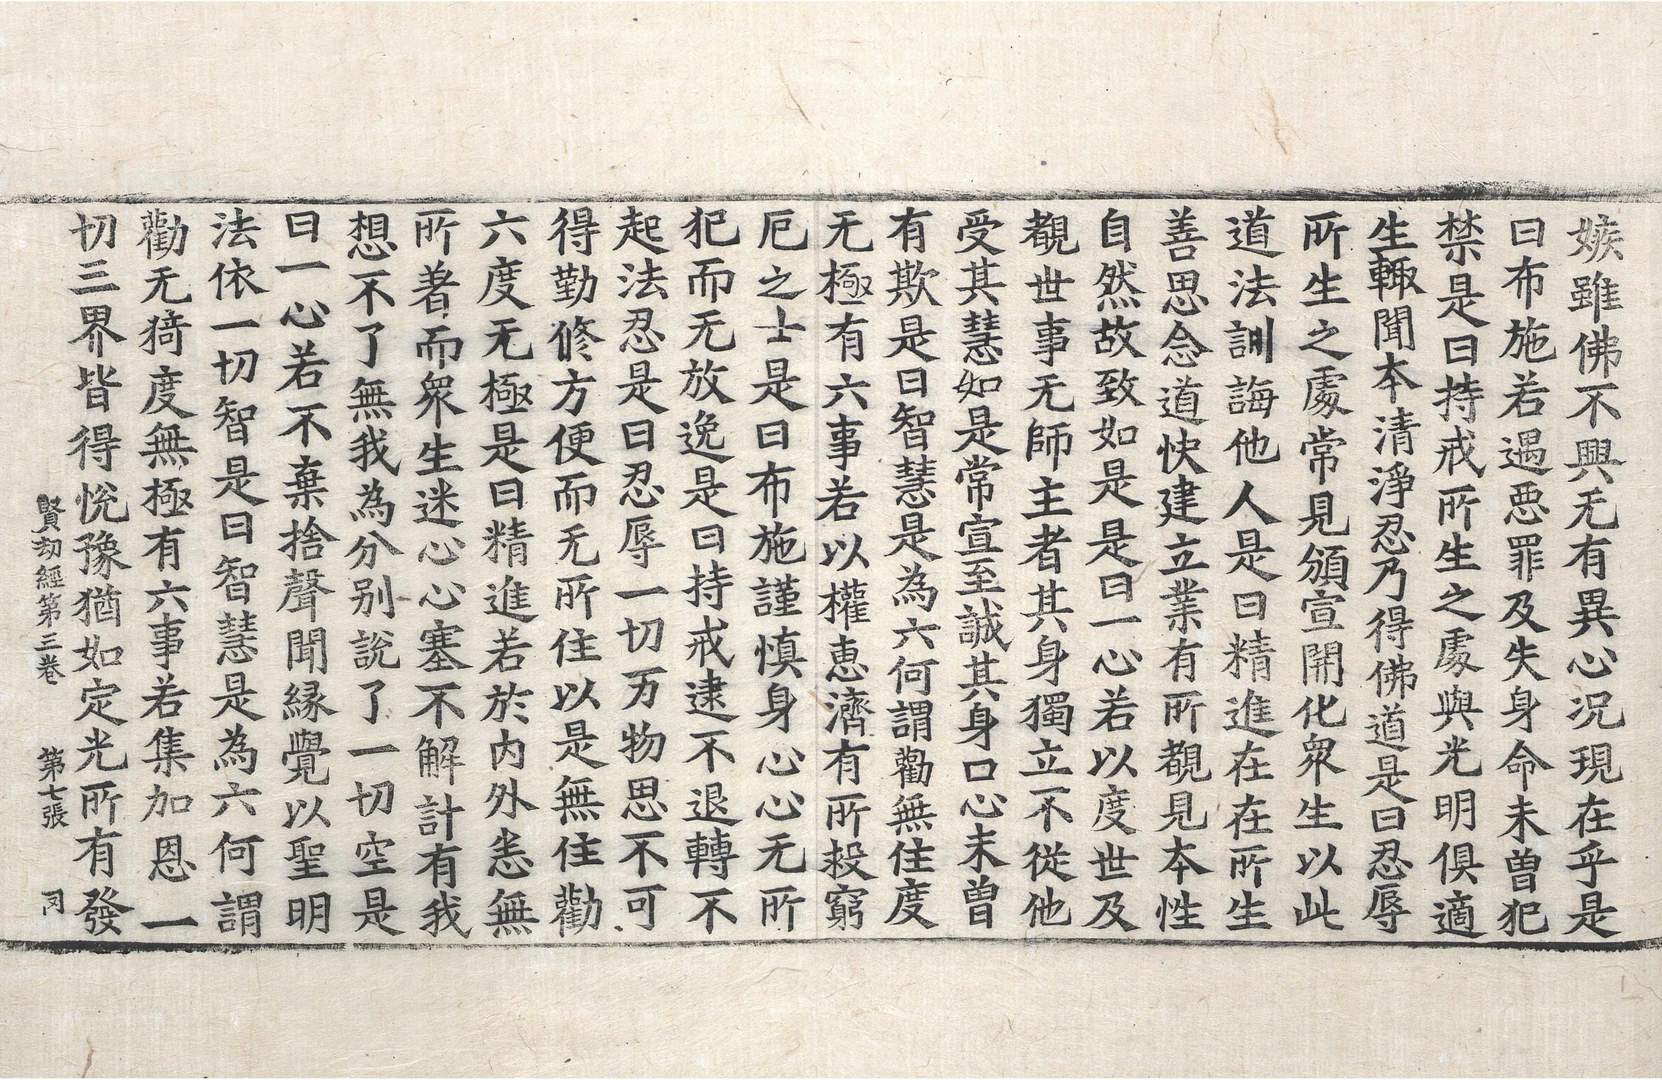 嫉雖佛不興无有異心况現在乎是
曰布施若遇惡罪及失身命未曽犯
禁是曰持戒所生之處與光明俱適
生輙聞本清淨忍乃得佛道是曰忍辱
所生之處常見頒宣開化衆生以此
道法訓誨他人是曰精進在在所生
善思念道快建立業有所覩見本性
自然故致如是是曰一心若以度世及
覩世事无師主者其身獨立不從他
受其慧如是常宣至誠其身口心未曽
有欺是曰智慧是為六何謂勸無住度
无極有六事若以權惠濟有所投窮
厄之士是曰布施謹慎身心心无所
犯而无放逸是曰持戒逮不退轉不
起法忍是曰忍辱一切万物思不可
得勤修方便而无所住以是無住勸
六度无極是曰精進若於內外恚無
所著而衆生迷心心塞不解計有我
想不了無我為分别說了一切空是
曰一心若不棄捨聲聞緣覺以聖明
法依一切智是曰智慧是為六何謂
勸无猗度無極有六事若集加恩一
切三界皆得悅豫猶如定光所有發
賢劫經第三卷 第七張 同